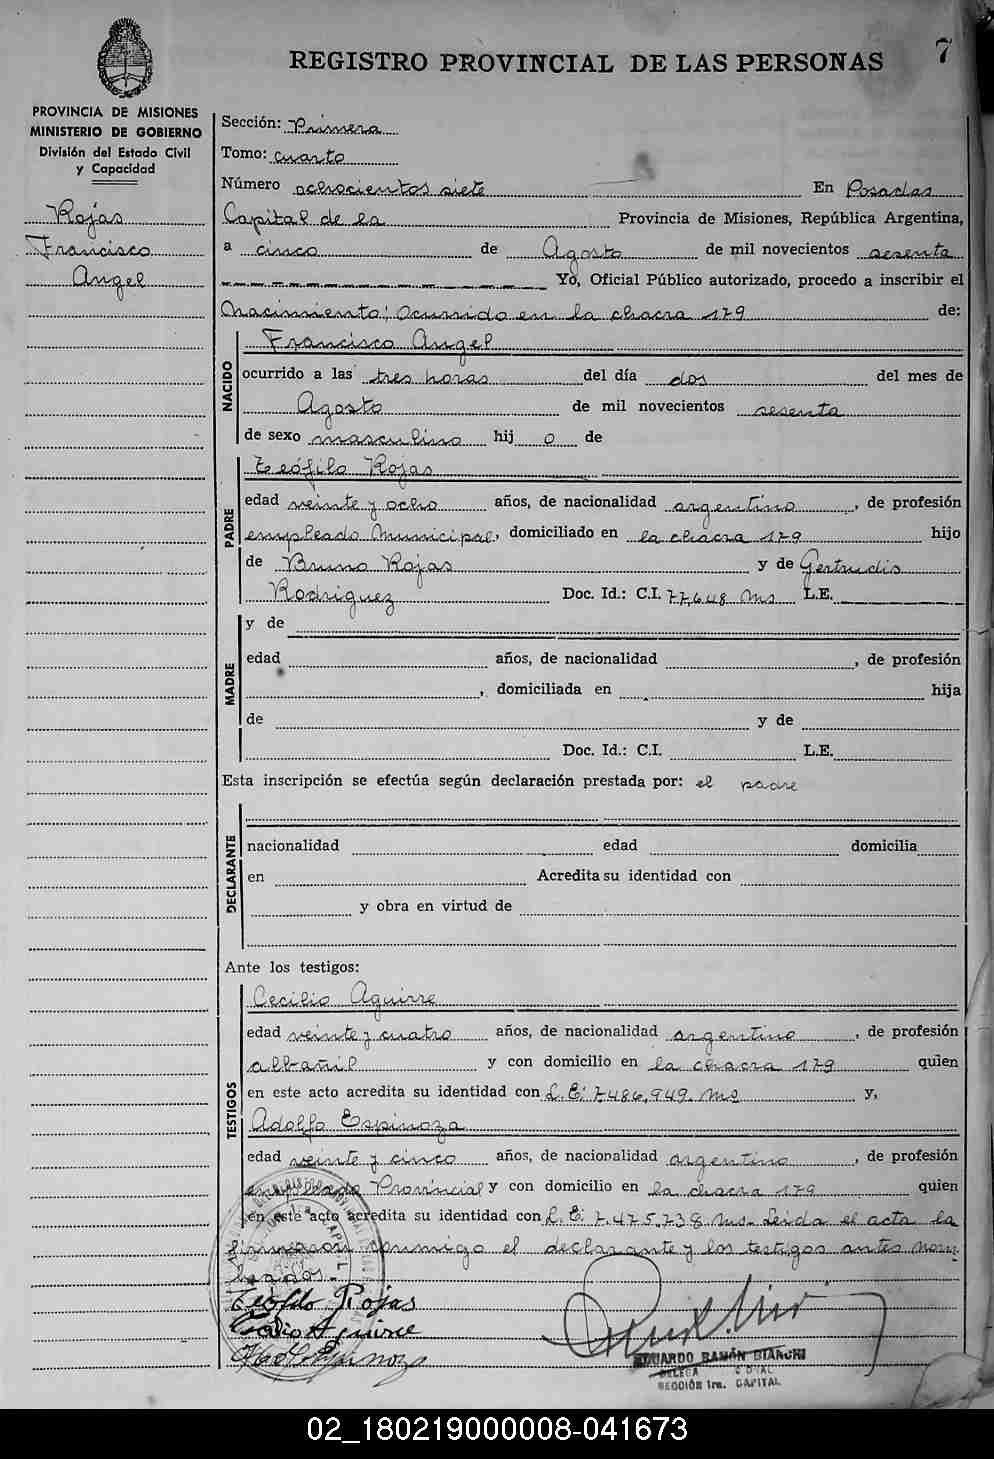 REGISTRO PROVINCIAL DE LAS PERSONAS
7
PROVINCIA DE MISIONES
MINISTERIO DE GOBIERNO
División del Estado Civil
y Capacidad
Rojas
Francisco
Angel
Sección: Primera
Tomo: cuarto
Número ochocientos siete En Posadas
Capital de la Provincia de Misiones, República Argentina,
a cinco de Agosto de mil novecientos sesenta
Yo, Oficial Público autorizado, procedo a inscribir el
Nacimiento; Ocurrido en la chacra 179 de:
NACIDO
Francisco Angel
ocurrido a las tres horas del día dos del mes de
Agosto de mil novecientos sesenta
de sexo masculino hij o de
PADRE
Teófilo Rojas
edad veinte y ocho años, de nacionalidad argentino, de profesión
empleado Municipal, domiciliado en la chacra 179 hijo
de Bruno Rojas y de Gertrudis
Rodriguez Doc. Id.: C.I. 77,648 Ms L.E.
MADRE
y de
edad años, de nacionalidad , de profesión
, domiciliada en hija
de y de
Doc. Id.: C.I. L.E.
Esta inscripción se efectúa según declaración prestada por: el padre
DECLARANTE
nacionalidad edad domicilia
en Acredita su identidad con
y obra en virtud de
Ante los testigos:
TESTIGOS
Cecilio Aguirre
edad veinte y cuatro años, de nacionalidad argentino, de profesión
albañil y con domicilio en la chacra 179 quien
en este acto acredita su identidad con L.E: 7.486,949. Ms y,
Adolfo Espinoza
edad veinte y cinco años, de nacionalidad argentino, de profesión
empleado Provincial y con domicilio en la chacra 179 quien
en este acto acredita su identidad con L.E: 7.475.738 Ms. Leida el acta la
firmaron conmigo el declarante y los testigos antes nom
brados.
Teófilo Rojas
Aguirre
Espinoza
EDUARDO RAMÓN BIANCHI
SECCIÓN 1ra. CAPITAL
02_180219000008-041673